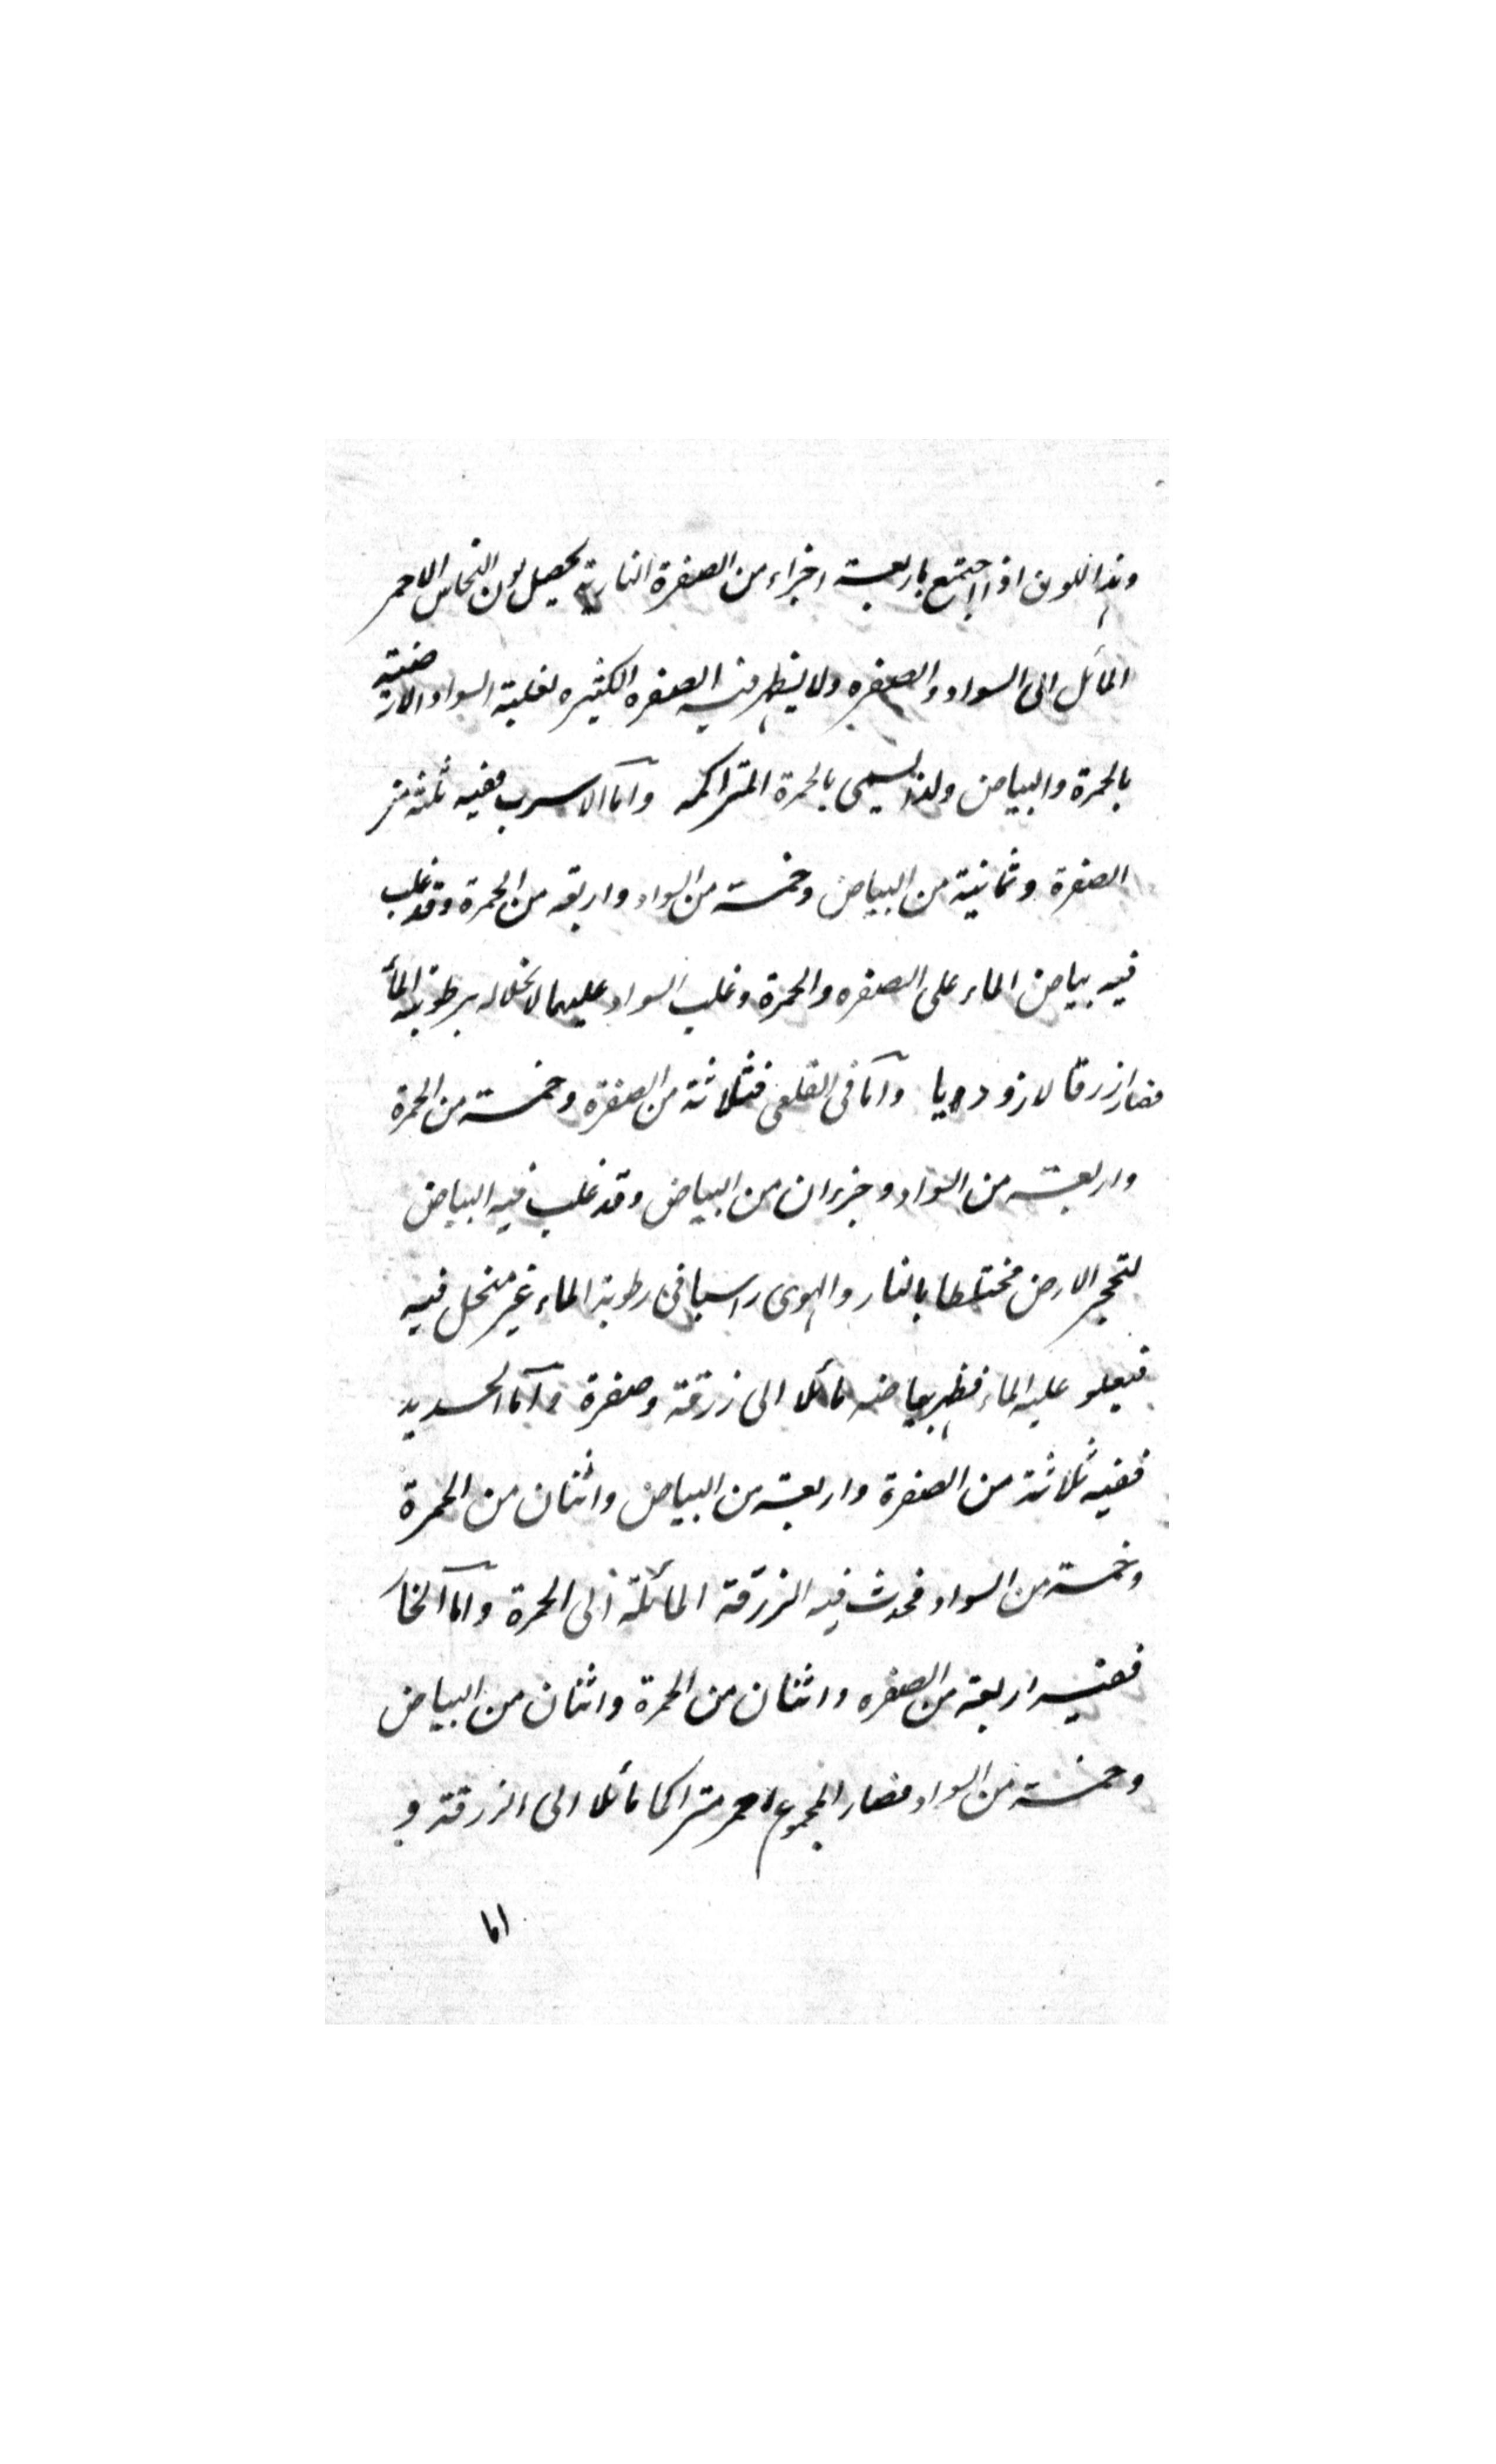 وهذا اللون اذا اجتمع باربعة اجزاء من الصفرة النارية يحصل لون النحاس الاحمر
المائل الى السواد والصفره ولا يظهر فيه الصفره الكثيره لغلبة السواد الارضية
بالحمرة والبياض ولذا يسمى بالحمرة المتراكمه وامّا الاسرب ففيه ثلثة من
الصفرة وثمانية من البياض وخمسة من السواد واربعه من الحمرة وقد غلب
فيه بياض الماء على الصفره والحمرة وغلب السواد عليهما لانحلاله برطوبة الماء
فصار ازرقا لازورديا وامّا فى القلعى فثلاثة من الصفرة وخمسة من الحمرة
واربعة من السواد وجزءان من البياض وقد غلب فيه البياض
لتحجر الارض مختلطا بالنار والهوى راسبا فى رطوبة الماء غير منحل فيه
فيعلو عليه الماء فظهر بياضه مائلا الى زرقة وصفرة وامّا الحديد
ففيه ثلاثة من الصفرة واربعة من البياض واثنان من الحمرة
وخمسة من السواد فحدث فيه الزرقة المائلة الى الحمرة وامّا النحاس
ففيه اربعة من الصفره واثنان من الحمرة واثنان من البياض
وخمسة من السواد فصار المجموع احمر متراكما مائلا الى الزرقة و
اما